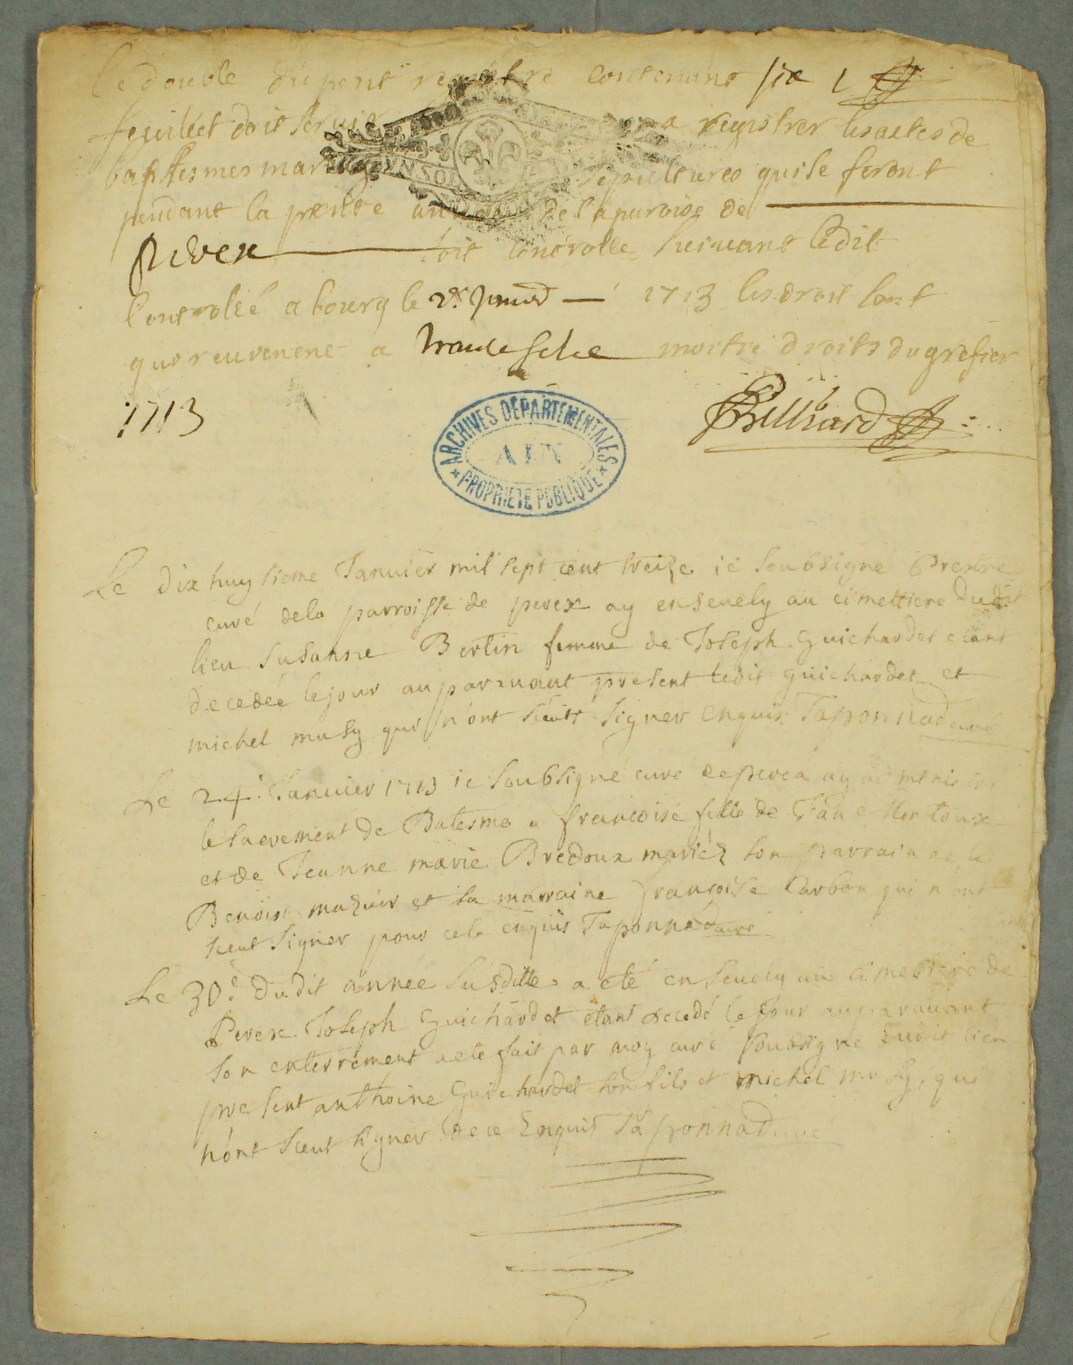 Le double du pent registre contenant six
feuillet doit servir a registrer les actes de
baptesmes mariag sepultures qui se feront
pendant la presste année de la paroise de
Perex soit controlle suivant ledit
Controllé a bourg le Janvd 1713 les droit sont
quoreuvenent a moitié droits du grefier
1713
Billiard
ARCHIVES DEPARTEMENTALES
AIN
PROPRIETE PUBLIQUE
Le dix huy tieme Janvier mil sept cent treize ie soubsigné Prestre
curé dela parroisse de perex ay ensevely au cimettiere dudit
lieu Susanne Bertin femme de Joseph Guichardet etant
decedée le jour auparavant present ledit guichardet et
michel musy qui n'ont sceut signer enquis Taponnad curé
Le 24. Janvier 1713 ie soubsigné curé de perex ay
le sacrement de Batesme a francoise fille de
et de Jeanne marie Bredoux mariéz son parrain
Benoist mazuir et sa marraine francoise Carbon qui n'ont
sceut signer pour cela enquis Taponnad curé
Le 30e dudit année susditte a eté ensevely au cimettiere de
Perex Joseph Guichardet etant decedé le jour auparavant
son enterrement a eté fait par moy curé soubsigné dudit lieu
present anthoine Guichardet son fils et michel musy, qui
n'ont sceut signer de ce Enquis Taponnad